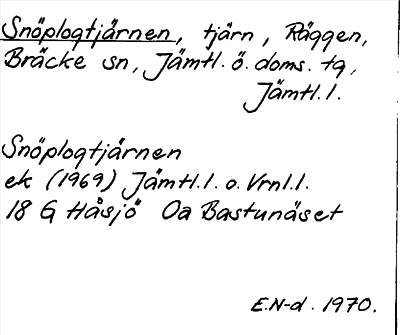 Snöplogtjärnen, tjärn, Räggen,
Bräcke sn, Jämtl. ö. doms. tg,
Jämtl. l.
Snöplogtjärnen
ek (1969) Jämtl. l. o. Vrnl. l.
18 G Håsjö Oa Bastunäset
E.N-d. 1970.